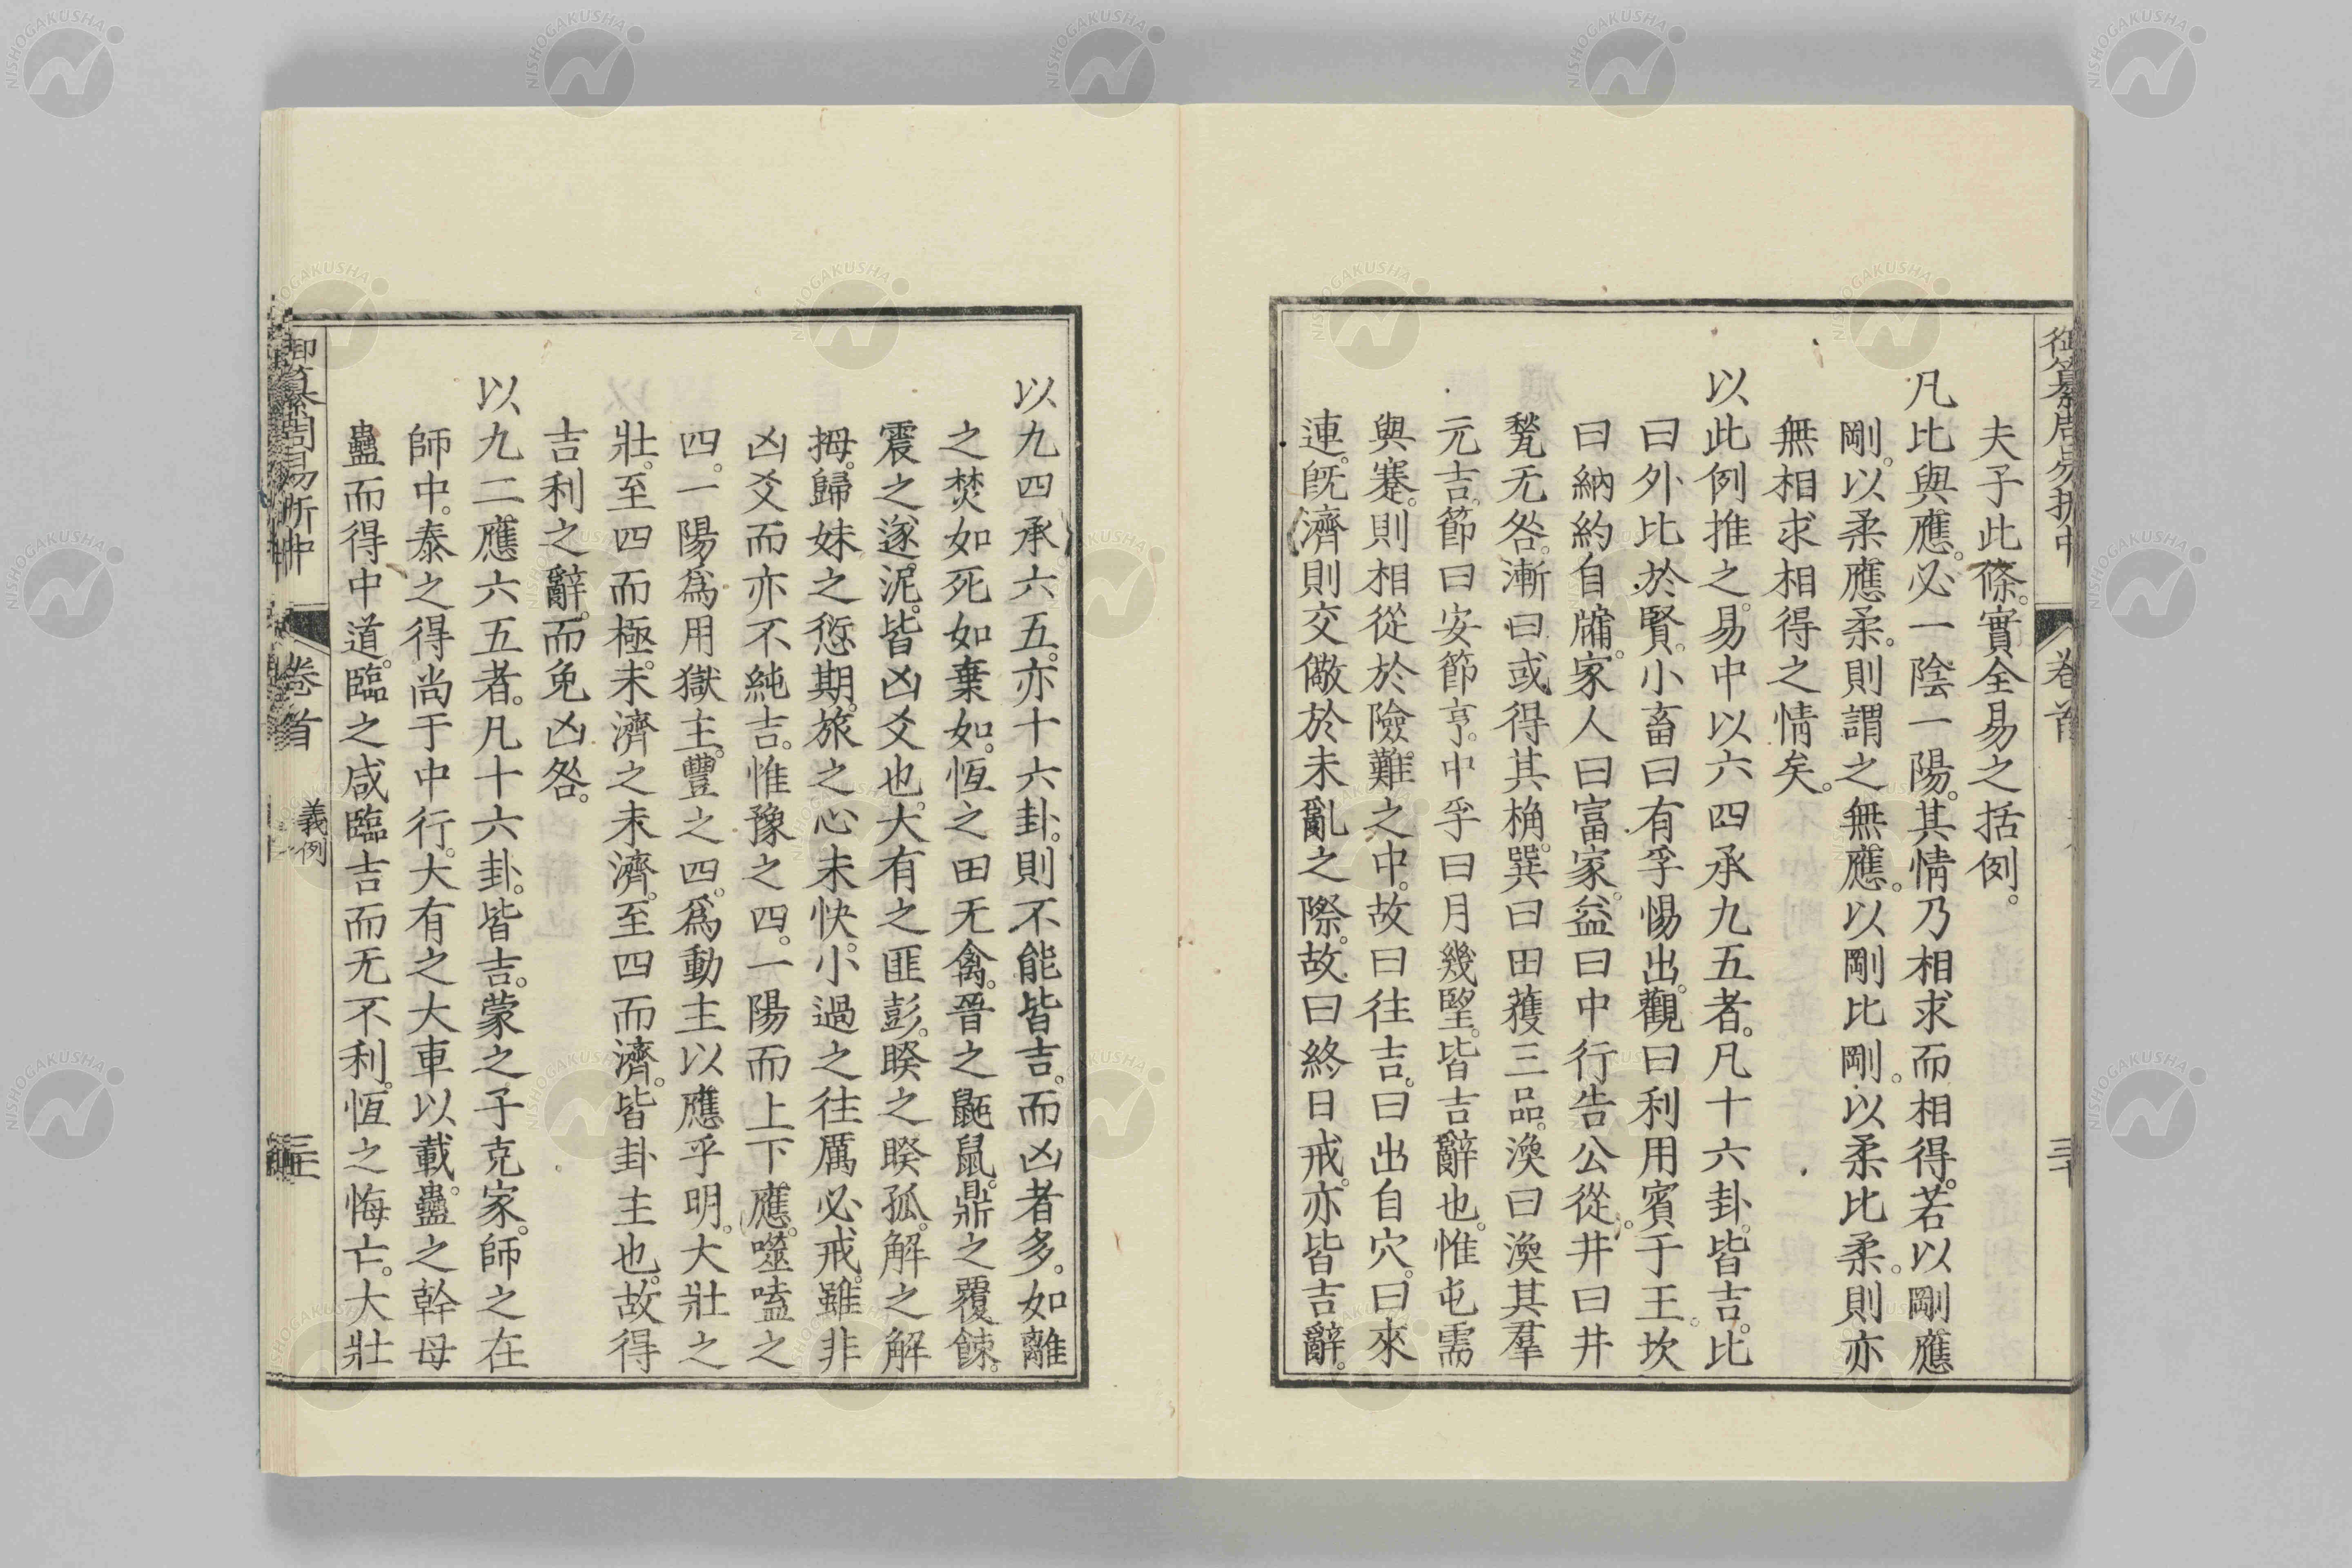 御纂周易折中 卷首 三十
夫子此條。實全易之括例。
凡比與應。必一陰一陽。其情乃相求而相得。若以剛應
剛。以柔應柔。則謂之無應。以剛比剛。以柔比柔。則亦
無相求相得之情矣。
以此例推之。易中以六四承九五者。凡十六卦。皆吉。比
曰外比於賢。小畜曰有孚惕出。觀曰利用賓于王。坎
曰納約自牖。家人曰富家。益曰中行告公從。井曰井
甃无咎。漸曰或得其桷。巽曰田獲三品。渙曰渙其羣
元吉。節曰安節亨。中孚曰月幾望。皆吉辭也。惟屯需
與蹇。則相從於險難之中。故曰往吉。曰出自穴。曰來
連。旣濟則交儆於未亂之際。故曰終日戒。亦皆吉辭。
以九四承六五。亦十六卦。則不能皆吉。而凶者多。如離
之焚如死如棄如。恆之田无禽。晉之鼫鼠。鼎之覆餗。
震之遂泥。皆凶爻也。大有之匪彭。睽之睽孤。解之解
拇。歸妹之愆期。旅之心未快。小過之往厲必戒。雖非
凶爻而亦不純吉。惟豫之四。一陽而上下應。噬嗑之
四。一陽爲用獄主。豐之四。爲動主以應乎明。大壯之
壯。至四而極。未濟之未濟。至四而濟。皆卦主也。故得
吉利之辭。而免凶咎。
以九二應六五者。凡十六卦。皆吉。蒙之子克家。師之在
師中。泰之得尚于中行。大有之大車以載。蠱之幹母
蠱而得中道。臨之咸臨吉而无不利。恆之悔亡。大壯
御纂周易折中 卷首 義例